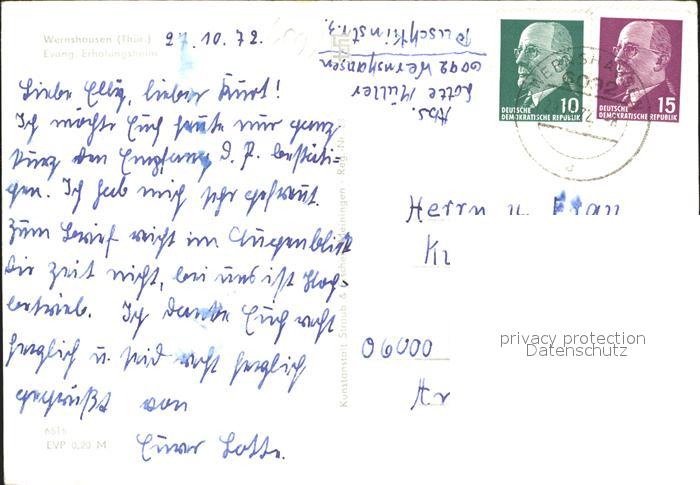 Wernshausen (Thür.)
Evang. Erholungsheim
27.10.72.
Liebe Elly, lieber Kurt!
Ich möchte Euch heute nur ganz
kurz den Empfang d. P. bestäti-
gen. Ich hab mich sehr gefreut.
Zum Brief reicht im Augenblick
die Zeit nicht, bei uns ist Hoch-
betrieb. Ich danke Euch recht
herzlich u. seid recht herzlich
gegrüßt von
Eurer Lotte.
6516
EVP 0,20 M
Abs.
Lotte Müller
6092 Wernshausen
Puschkinstr. 3
Kunstanstalt Straub & Fischer Meiningen
DEUTSCHE
DEMOKRATISCHE REPUBLIK
10
DEUTSCHE
DEMOKRATISCHE REPUBLIK
15
WERNSHAUSEN
6092
d
Herrn u. Frau
Kr
06000
Ar
privacy protection
Datenschutz